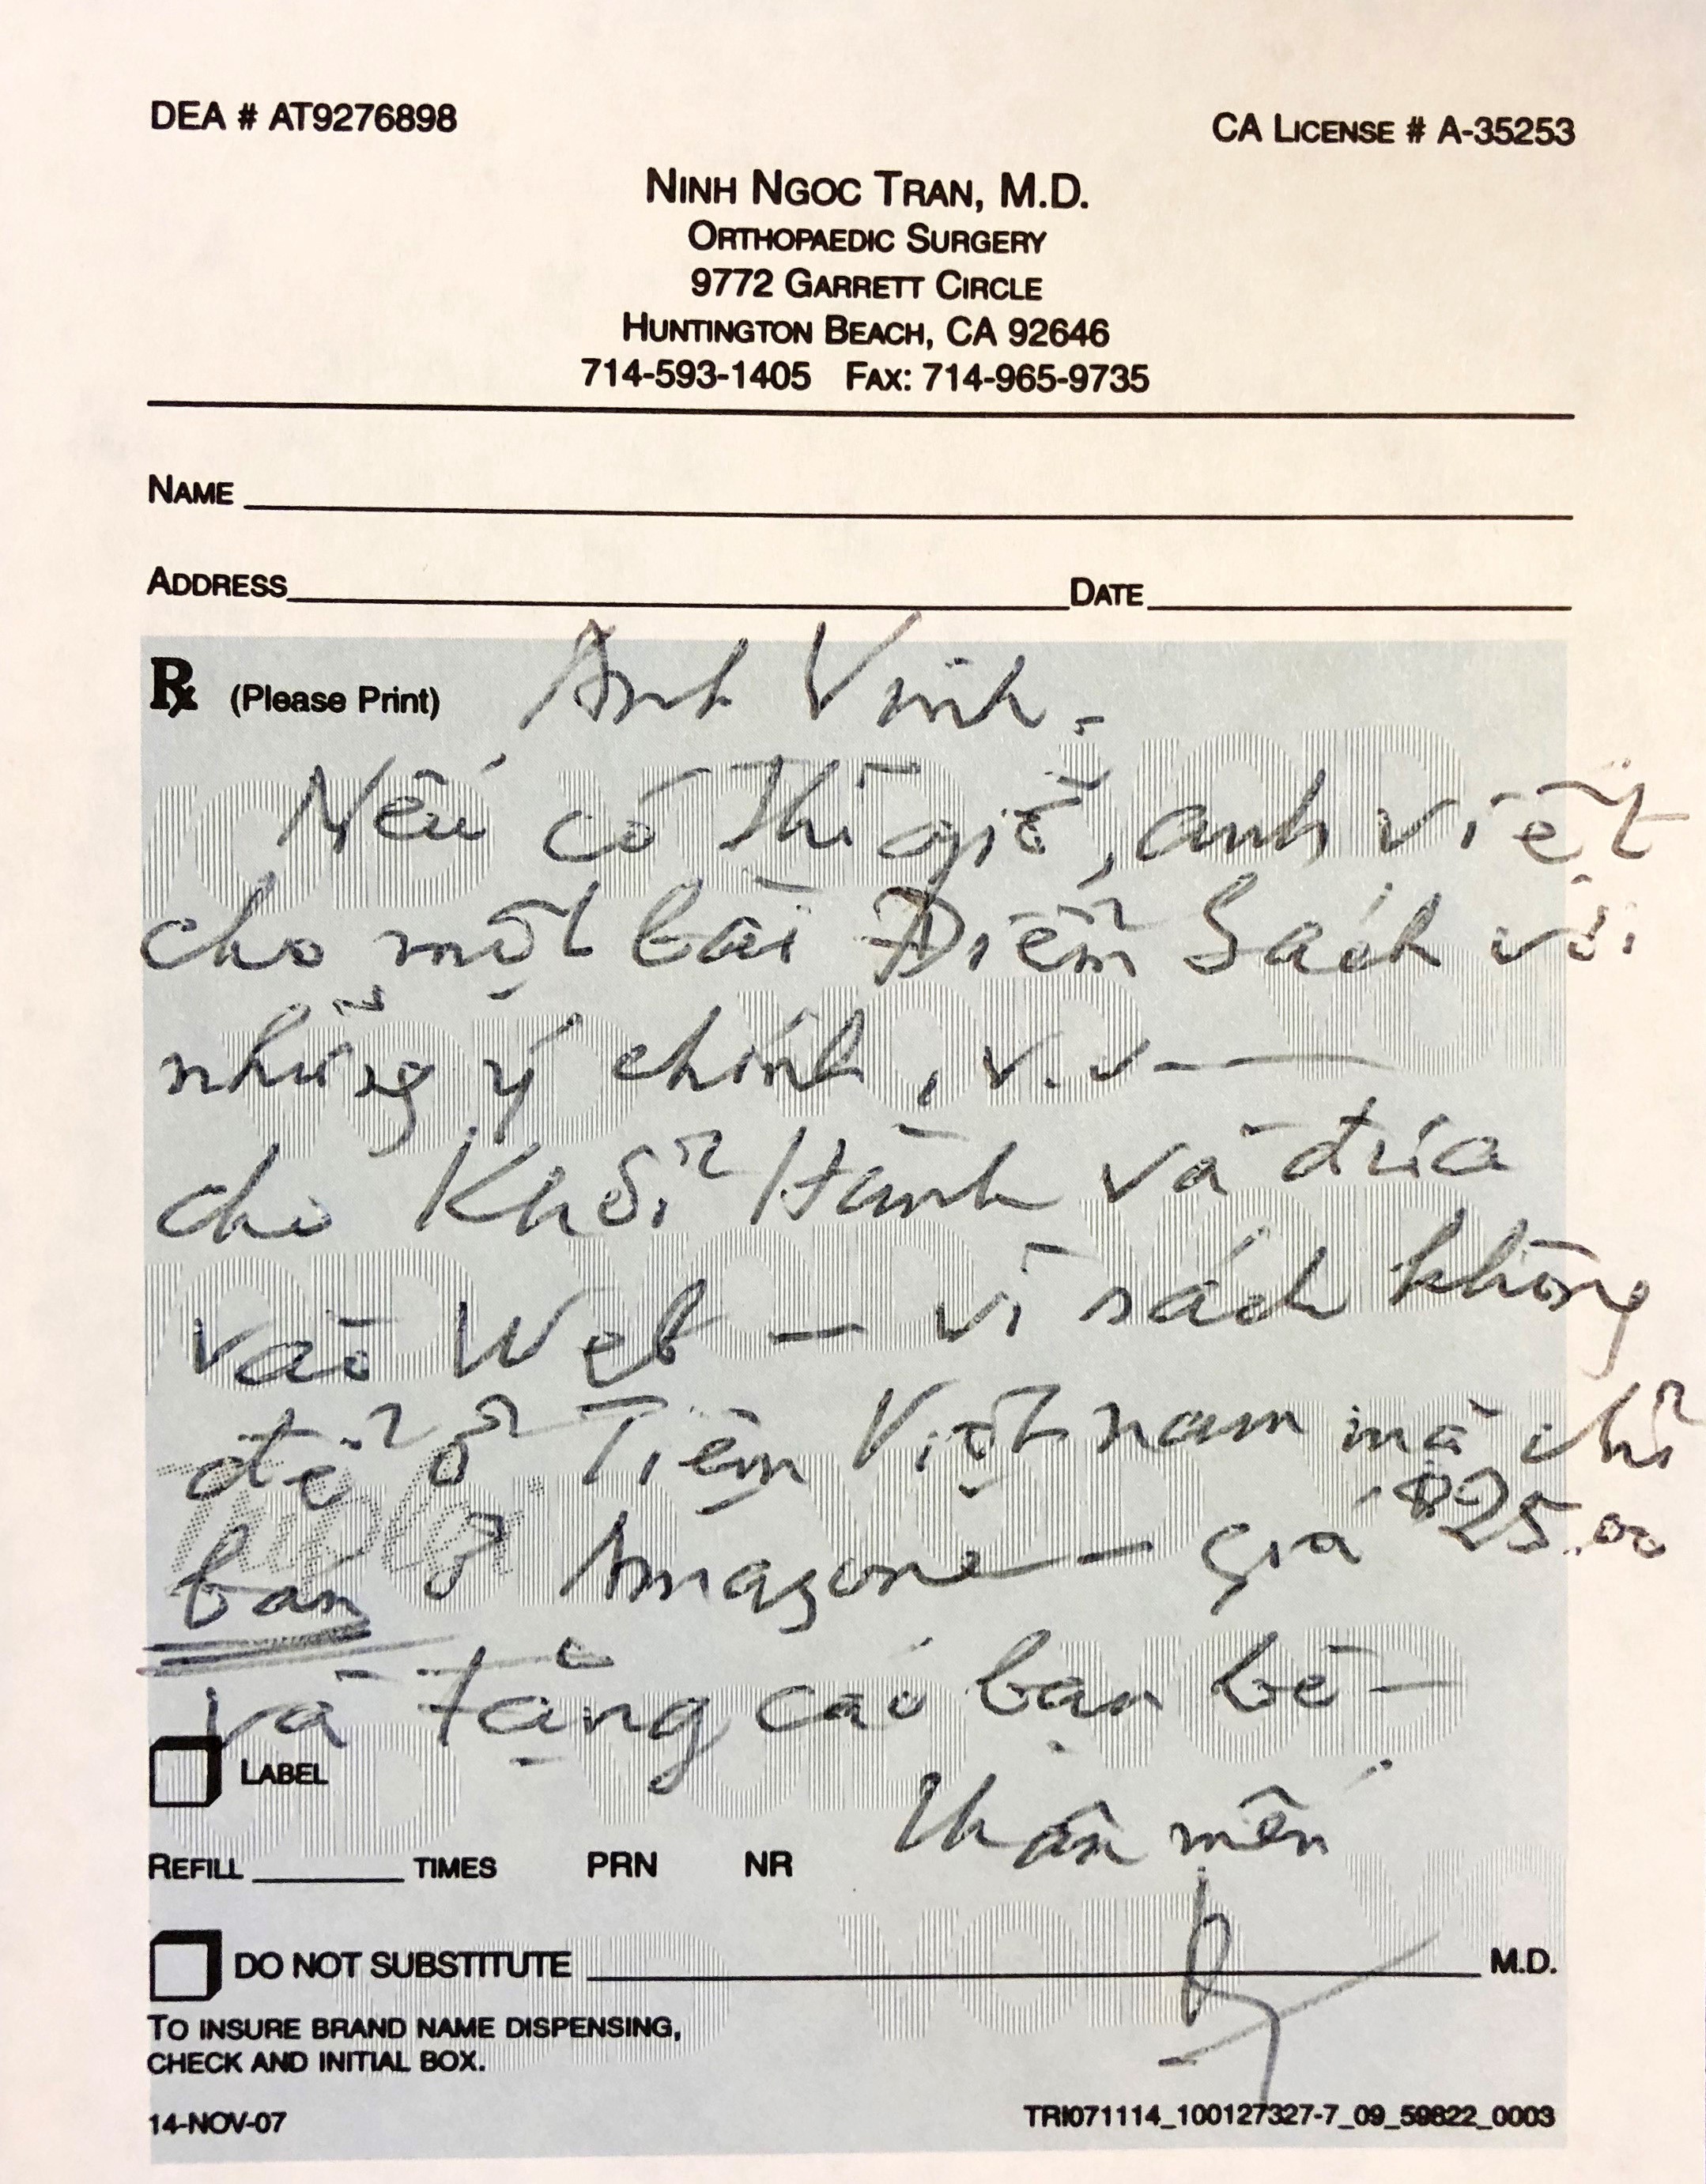 DEA # AT9276898
CA LICENSE # A-35253
NINH NGOC TRAN, M.D.
ORTHOPAEDIC SURGERY
9772 GARRETT CIRCLE
HUNTINGTON BEACH, CA 92646
714-593-1405 FAX: 714-965-9735
NAME
ADDRESS DATE
Rx (Please Print) Anh Vinh -
Nếu có thì giờ, anh viết
cho một bài Điểm Sách với
những ý chính, v.v —
cho Khởi Hành và đưa
vào Web — vì sách không
để ở Tiệm Việt nam mà chỉ
bán ở Amazone — giá $25.00
và tặng các bạn bè —
LABEL
Thân mến
REFILL TIMES PRN NR
DO NOT SUBSTITUTE M.D.
TO INSURE BRAND NAME DISPENSING,
CHECK AND INITIAL BOX.
14-NOV-07
TRI071114_100127327-7_09_59822_0003